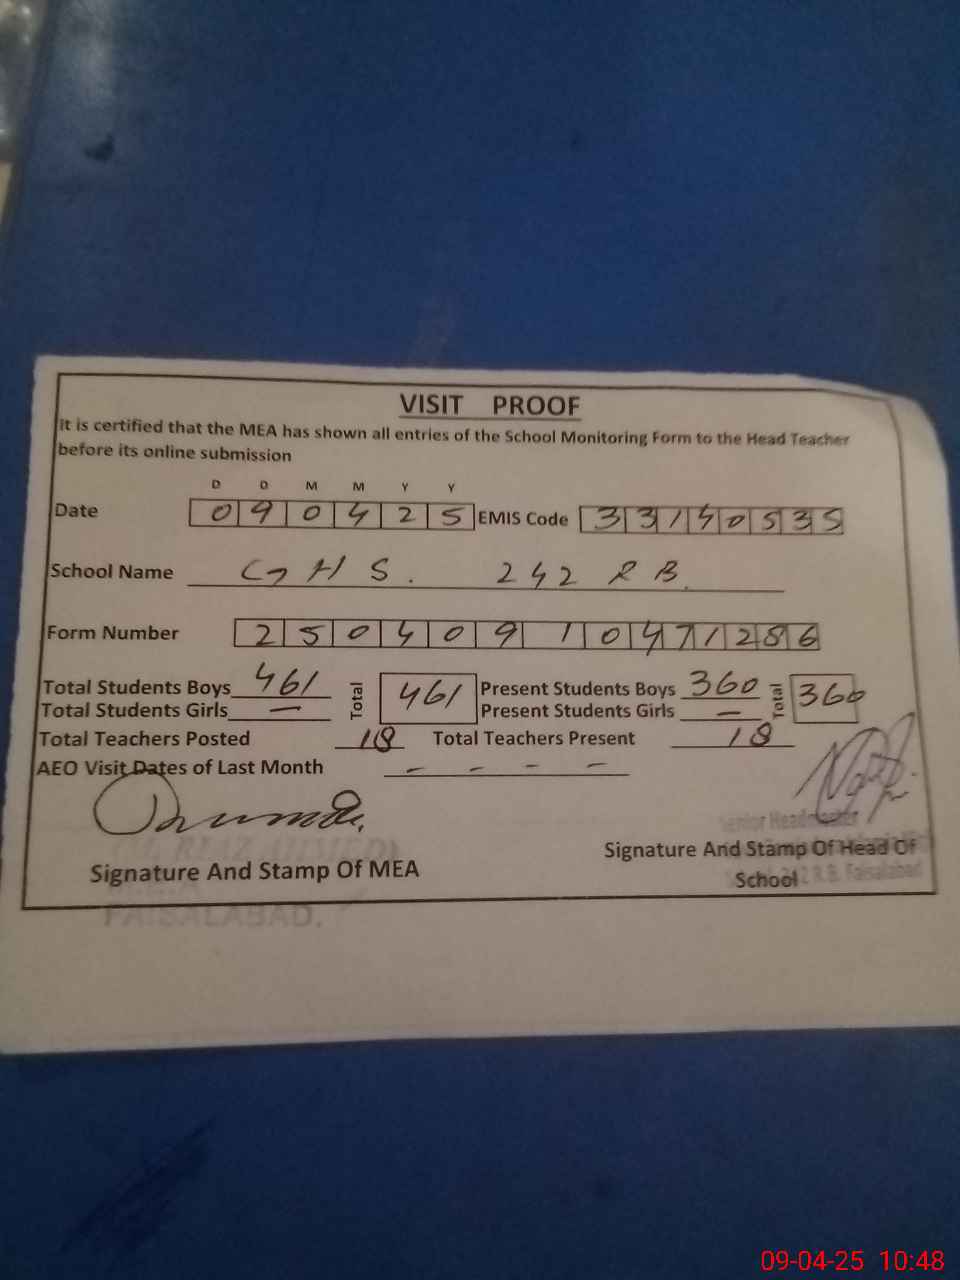 VISIT PROOF
It is certified that the MEA has shown all entries of the School Monitoring Form to the Head Teacher
before its online submission
D D M M Y Y
Date 090425 EMIS Code 33140535
School Name GHS. 242 RB
Form Number 2504091047 1286
Total Students Boys 461 Total 461 Present Students Boys 360 Total 360
Total Students Girls — Present Students Girls —
Total Teachers Posted 18 Total Teachers Present 18
AEO Visit Dates of Last Month - - - -
Senior Headmaster
Signature And Stamp Of MEA Signature And Stamp Of Head Of
School 2 R.B. Faisalabad
FAISALABAD.
09-04-25 10:48